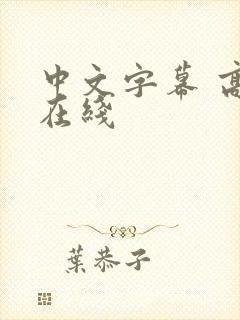 中文字幕 高
在綫
葉恭子